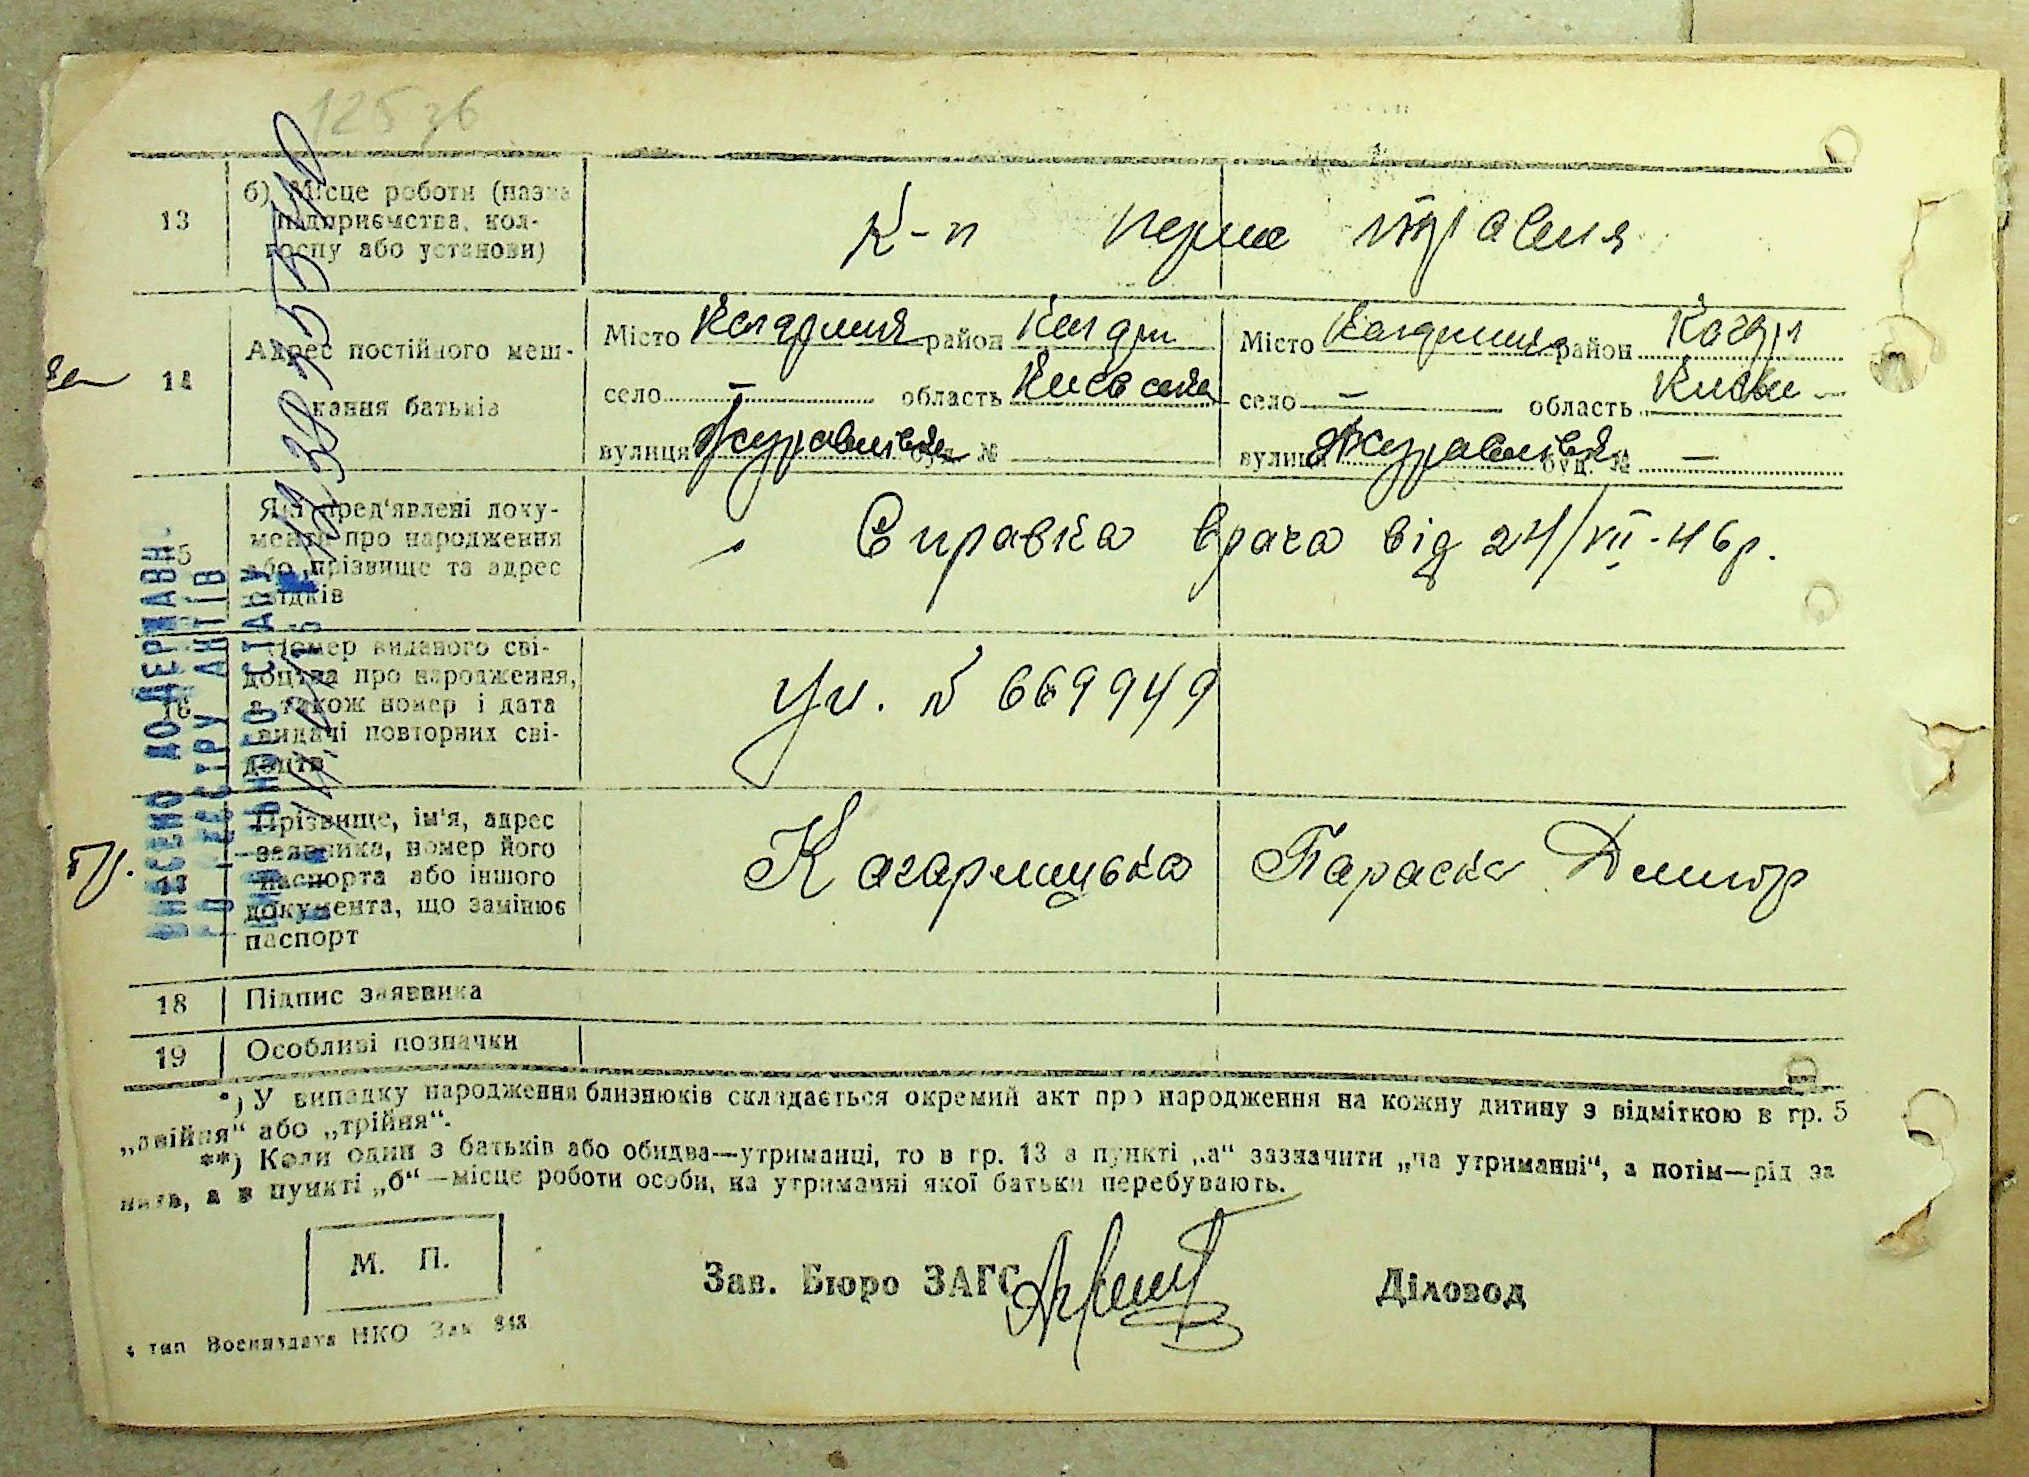 125 зв
13
б) Місце роботи (назва
підприємства, кол-
госпу або установи)
К-п перше травня
14
Адрес постійного меш-
кання батьків
Місто район
село — область Київська
вулиця Журавлівка буд. №
Місто район
село — область
вулиця Журавлівка буд. № —
15
Які пред'явлені доку-
менти про народження
або прізвище та адрес
свідків
Справка врача від 24/VII-46р.
16
Номер виданого сві-
доцтва про народження,
а також номер і дата
видачі повторних сві-
доцтв
№ 669949
17
Прізвище, ім'я, адрес
заявника, номер його
паспорта або іншого
документа, що замінює
паспорт
Кагарлицька Параска Дмитр
18 Підпис заявника
19 Особливі позначки
ВНЕСЕНО ДО ДЕРЖАВН.
РЕЄСТРУ АКТІВ
ЦИВІЛЬНОГО СТАНУ
*) У випадку народження близнюків складається окремий акт про народження на кожну дитину з відміткою в гр. 5
„двійня“ або „трійня“.
**) Коли один з батьків або обидва—утриманці, то в гр. 13 в пункті „а“ зазначити „на утриманні“, а потім—рід за
нять, а в пункті „б“—місце роботи особи, на утриманні якої батьки перебувають.
М. П.
Зав. Бюро ЗАГС
Діловод
4 тип Воениздата НКО Зак 843